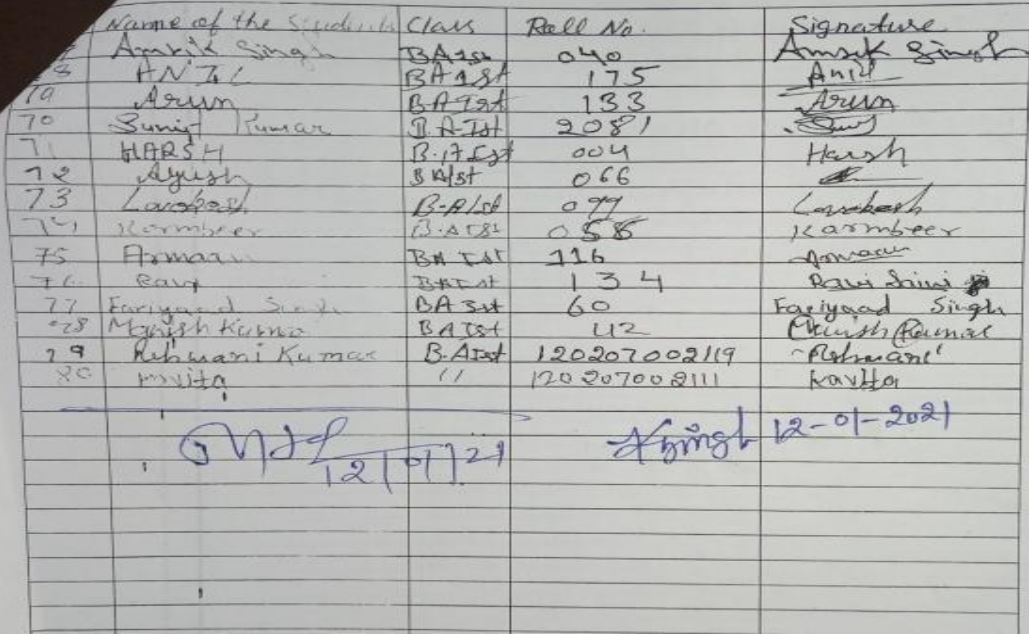 Name of the Students Class Roll No. Signature
Amrik Singh BA 1st 040 Amrik Singh
ANIL BA 1st 175 Anil
Arun B.A Ist 133 Arun
70 Sumit Kumar B.A-Ist 2081
71 HARSH B.A Ist 004 Harsh
72 Ayush BA/st 066
73 Lovekesh B-A/st 099 Lovekesh
Karmbeer B.A 1st 058 Karmbeer
75 Armaan BA Ist 116 Armaan
76 Ravi BA Ist 134 Ravi Saini
77 Fariyaad Singh BA 1st 60 Fariyaad Singh
78 Manish Kumar BA Ist 42 Manish Kumar
79 Rihmani Kumar B.A Ist 120207002119
80 Kavita " 1202070002111 Kavita
12-01-2021
12/01/21